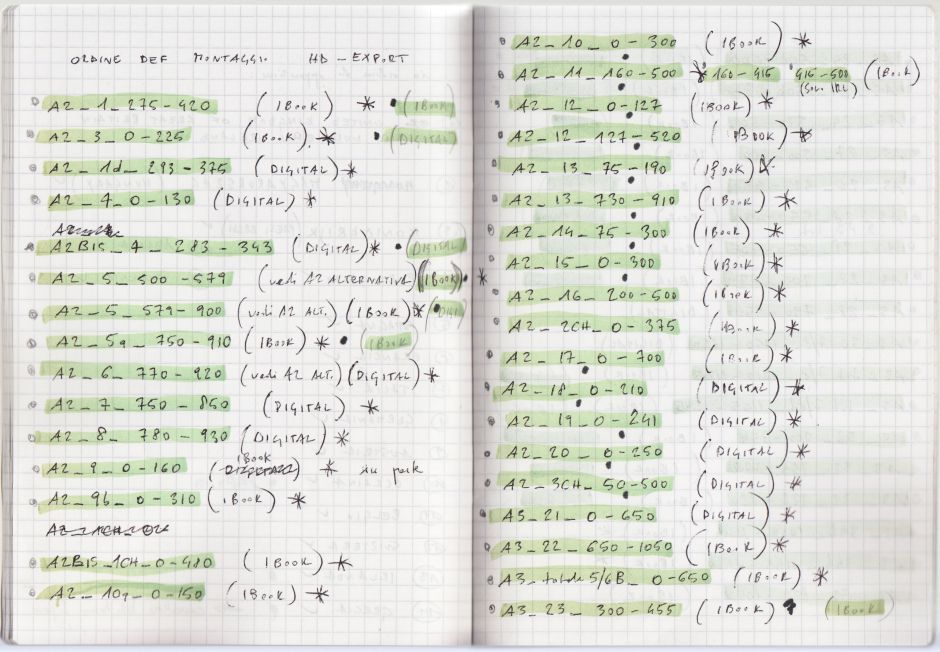 ORDINE DEF MONTAGGIO HD - EXPORT
A2_1_275-420 (IBOOK) * (IBOOK)
A2_3_0-225 (IBOOK) * (DIGITAL)
A2_1d_293-375 (DIGITAL) *
A2_4_0-130 (DIGITAL) *
A2BIS_4_283-343 (DIGITAL) * (DIGITAL)
A2_5_500-579 (vedi A2 ALTERNATIVA) (IBOOK) *
A2_5_579-900 (vedi A2 ALT.) (IBOOK) *
A2_5a_750-910 (IBOOK) * (IBOOK)
A2_6_770-920 (vedi A2 ALT.) (DIGITAL) *
A2_7_750-850 (DIGITAL) *
A2_8_780-930 (DIGITAL) *
IBOOK
A2_9_0-160 *
A2_9b_0-310 (IBOOK) *
A2BIS_1CH_0-480 (IBOOK) *
A2_10a_0-150 (IBOOK) *
A2_10_0-300 (IBOOK) *
A2_11_160-500 * 160-415 415-500 (IBOOK)
A2_12_0-127 (IBOOK) *
A2_12_127-520 (IBOOK) *
A2_13_75-190 (IBOOK)
A2_13_730-910 (IBOOK) *
A2_14_75-300 (IBOOK) *
A2_15_0-300 (IBOOK) *
A2_16_200-500 (IBOOK) *
A2_2CH_0-375 (IBOOK) *
A2_17_0-700 (IBOOK) *
A2_18_0-210 (DIGITAL) *
A2_19_0-241 (DIGITAL) *
A2_20_0-250 (DIGITAL) *
A2_3CH_50-500 (DIGITAL) *
A3_21_0-650 (DIGITAL) *
A3_22_650-1050 (IBOOK) *
A3_totale 5/6B_0-650 (IBOOK) *
A3_23_300-455 (IBOOK) (IBOOK)